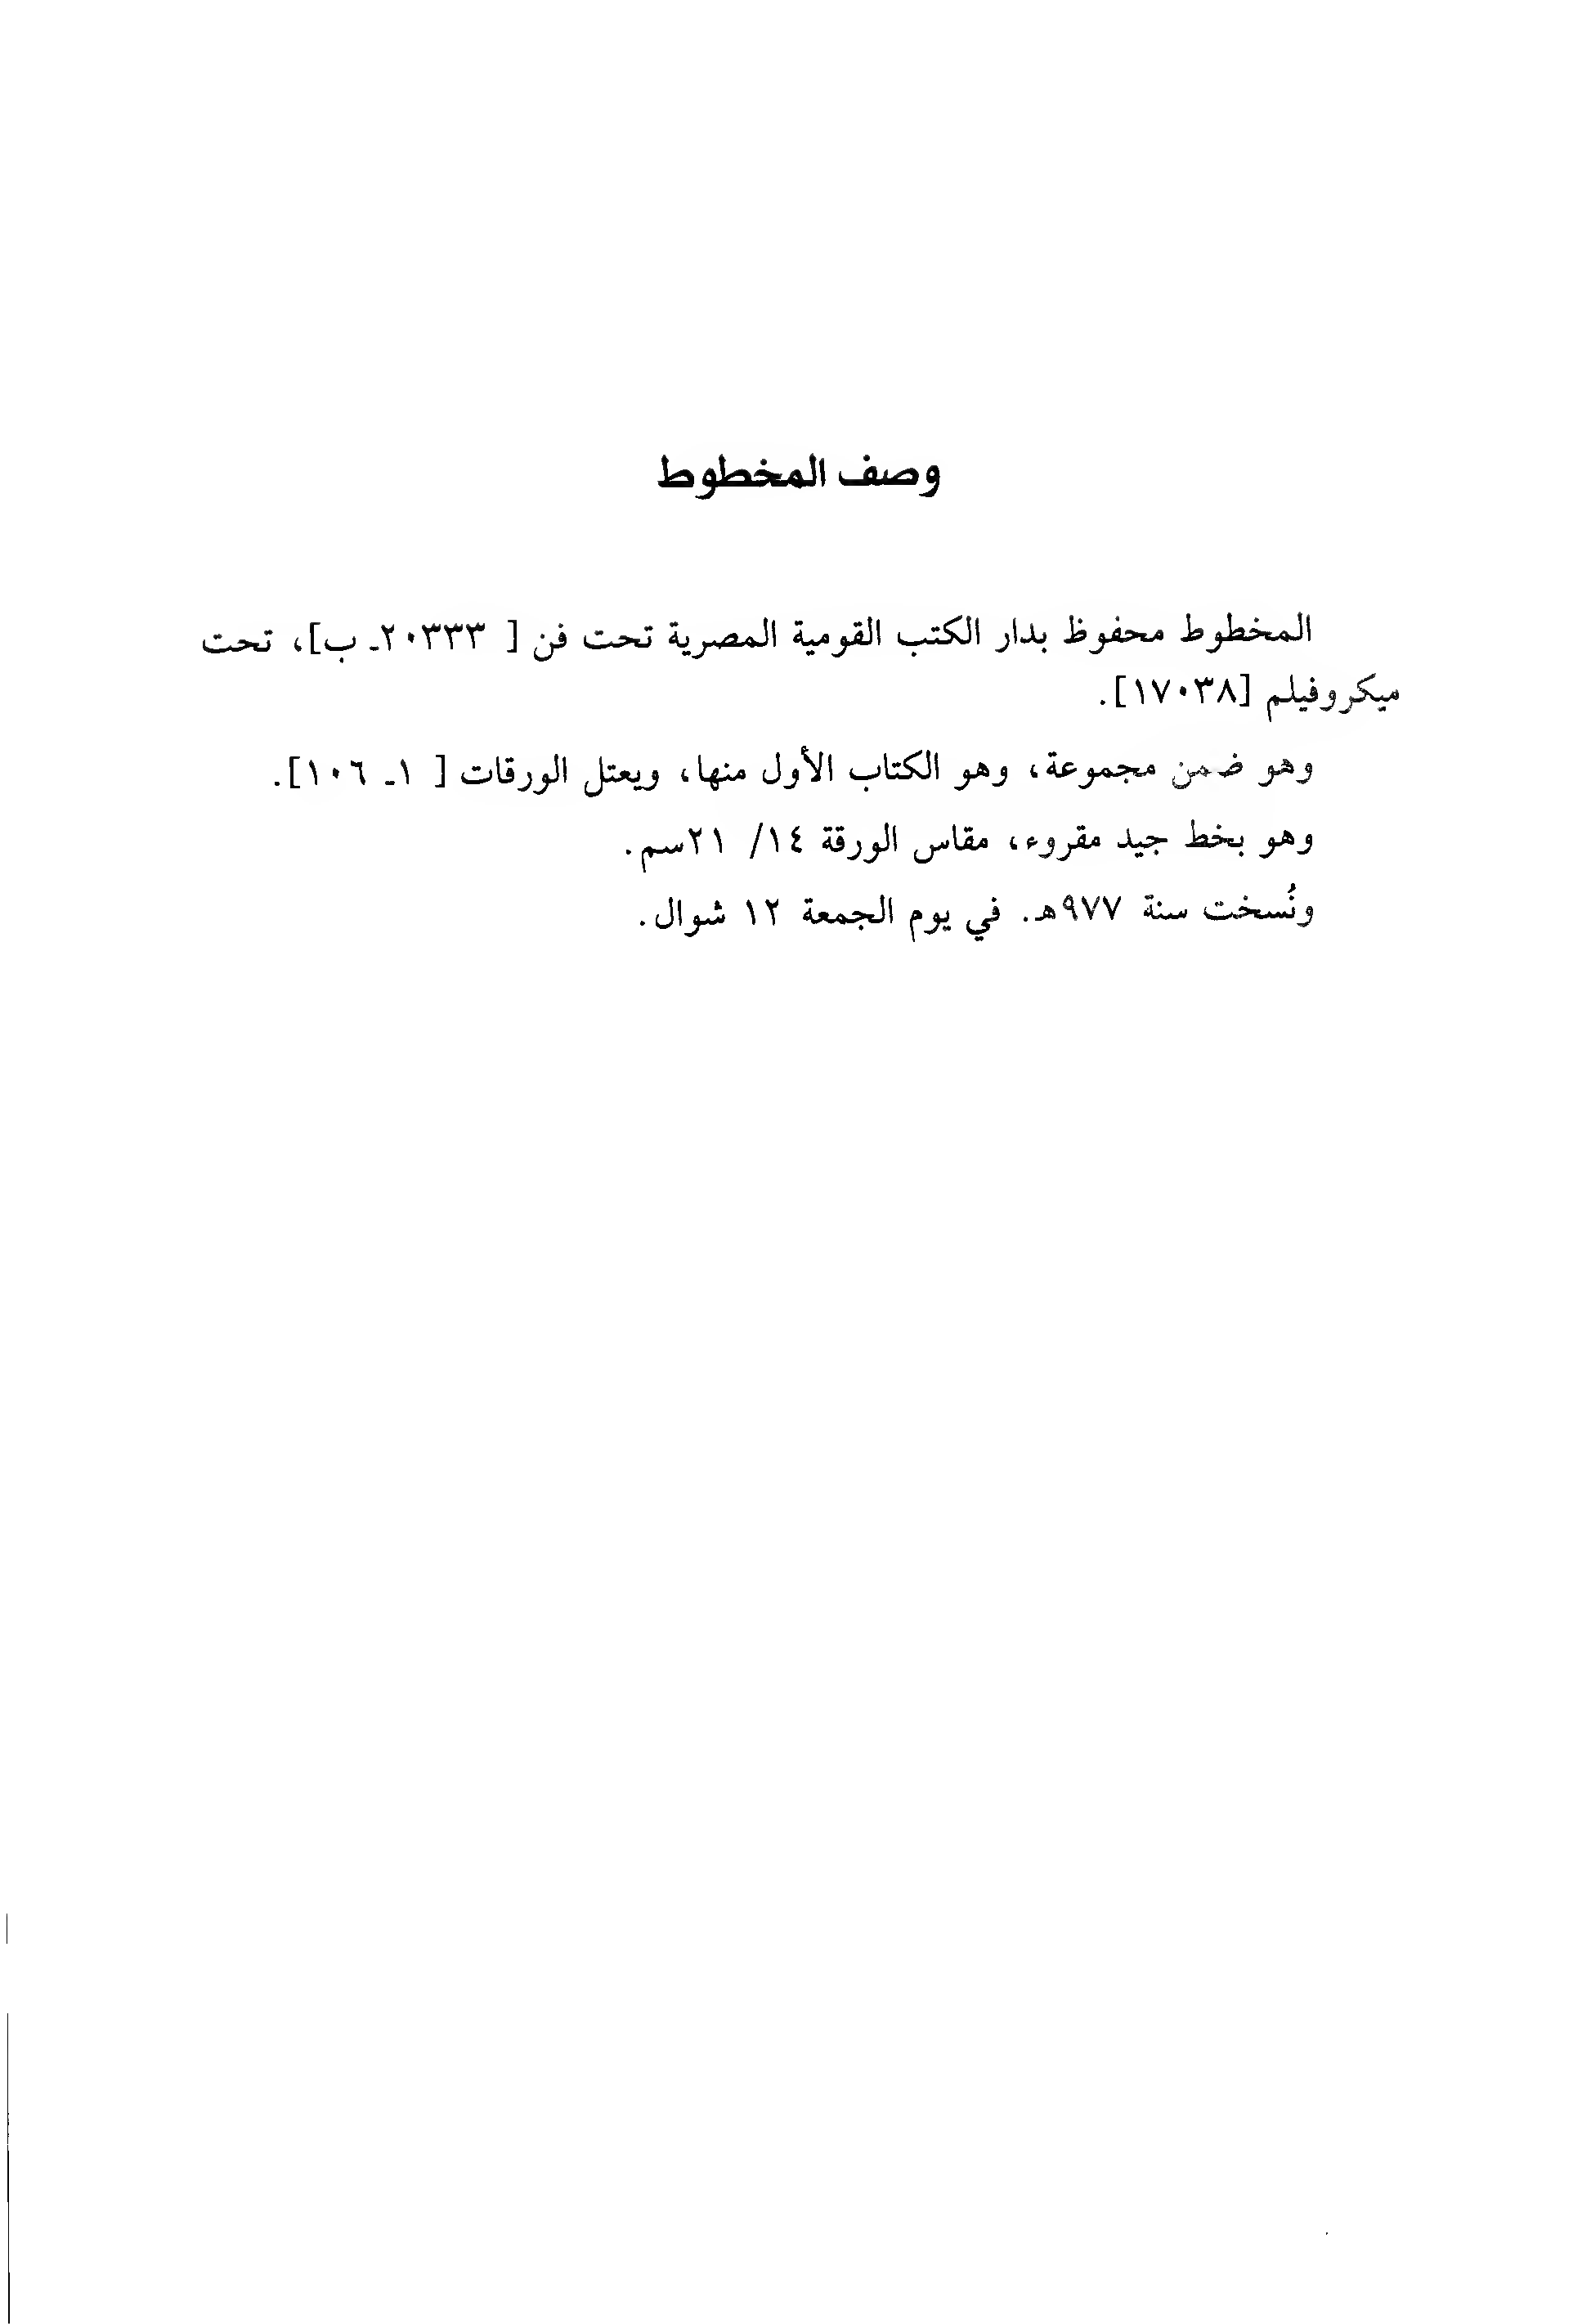 وصف المخطوط
المخطوط محفوظ بدار الكتب القومية المصرية تحت فن [ ٢٠٣٣٣ـ ب]، تحت
ميكروفيلم [١٧٠٣٨].
وهو ضمن مجموعة، وهو الكتاب الأول منها، ويعتل الورقات [ ١ـ ١٠٦].
وهو بخط جيد مقروء، مقاس الورقة ١٤/ ٢١سم.
ونُسخت سنة ٩٧٧هـ. في يوم الجمعة ١٢ شوال.